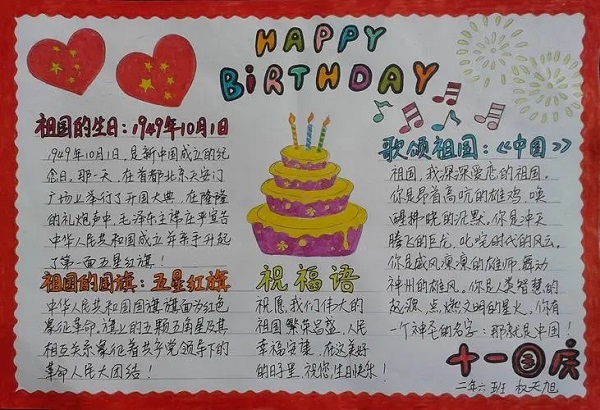 HAPPY
BiRTHDAY
祖国的生日:1949年10月1日
1949年10月1日,是新中国成立的纪
念日。那一天,在首都北京天安门
广场上举行了开国大典,在隆隆
的礼炮声中,毛泽东主席庄严宣告
中华人民共和国成立并亲手升起
了第一面五星红旗!
祖国的国旗:五星红旗
中华人民共和国国旗旗面为红色
象征革命,旗上的五颗五角星及其
相互关系象征着共产党领导下的
革命人民大团结!
祝福语
祝愿我们伟大的
祖国繁荣昌盛,人民
幸福安康,在这美好
的日子里,祝您生日快乐!
歌颂祖国:《中国》
祖国,我深深爱恋的祖国。
你是昂首高吭的雄鸡,唤
醒拂晓的沉默,你是冲天
腾飞的巨龙,叱咤时代的风云,
你是威风凛凛的雄狮,舞动
神州的雄风,你是人类智慧的
起源,点燃文明的星火。你有
一个神圣的名字:那就是中国!
十一国庆
二年六班 权天旭